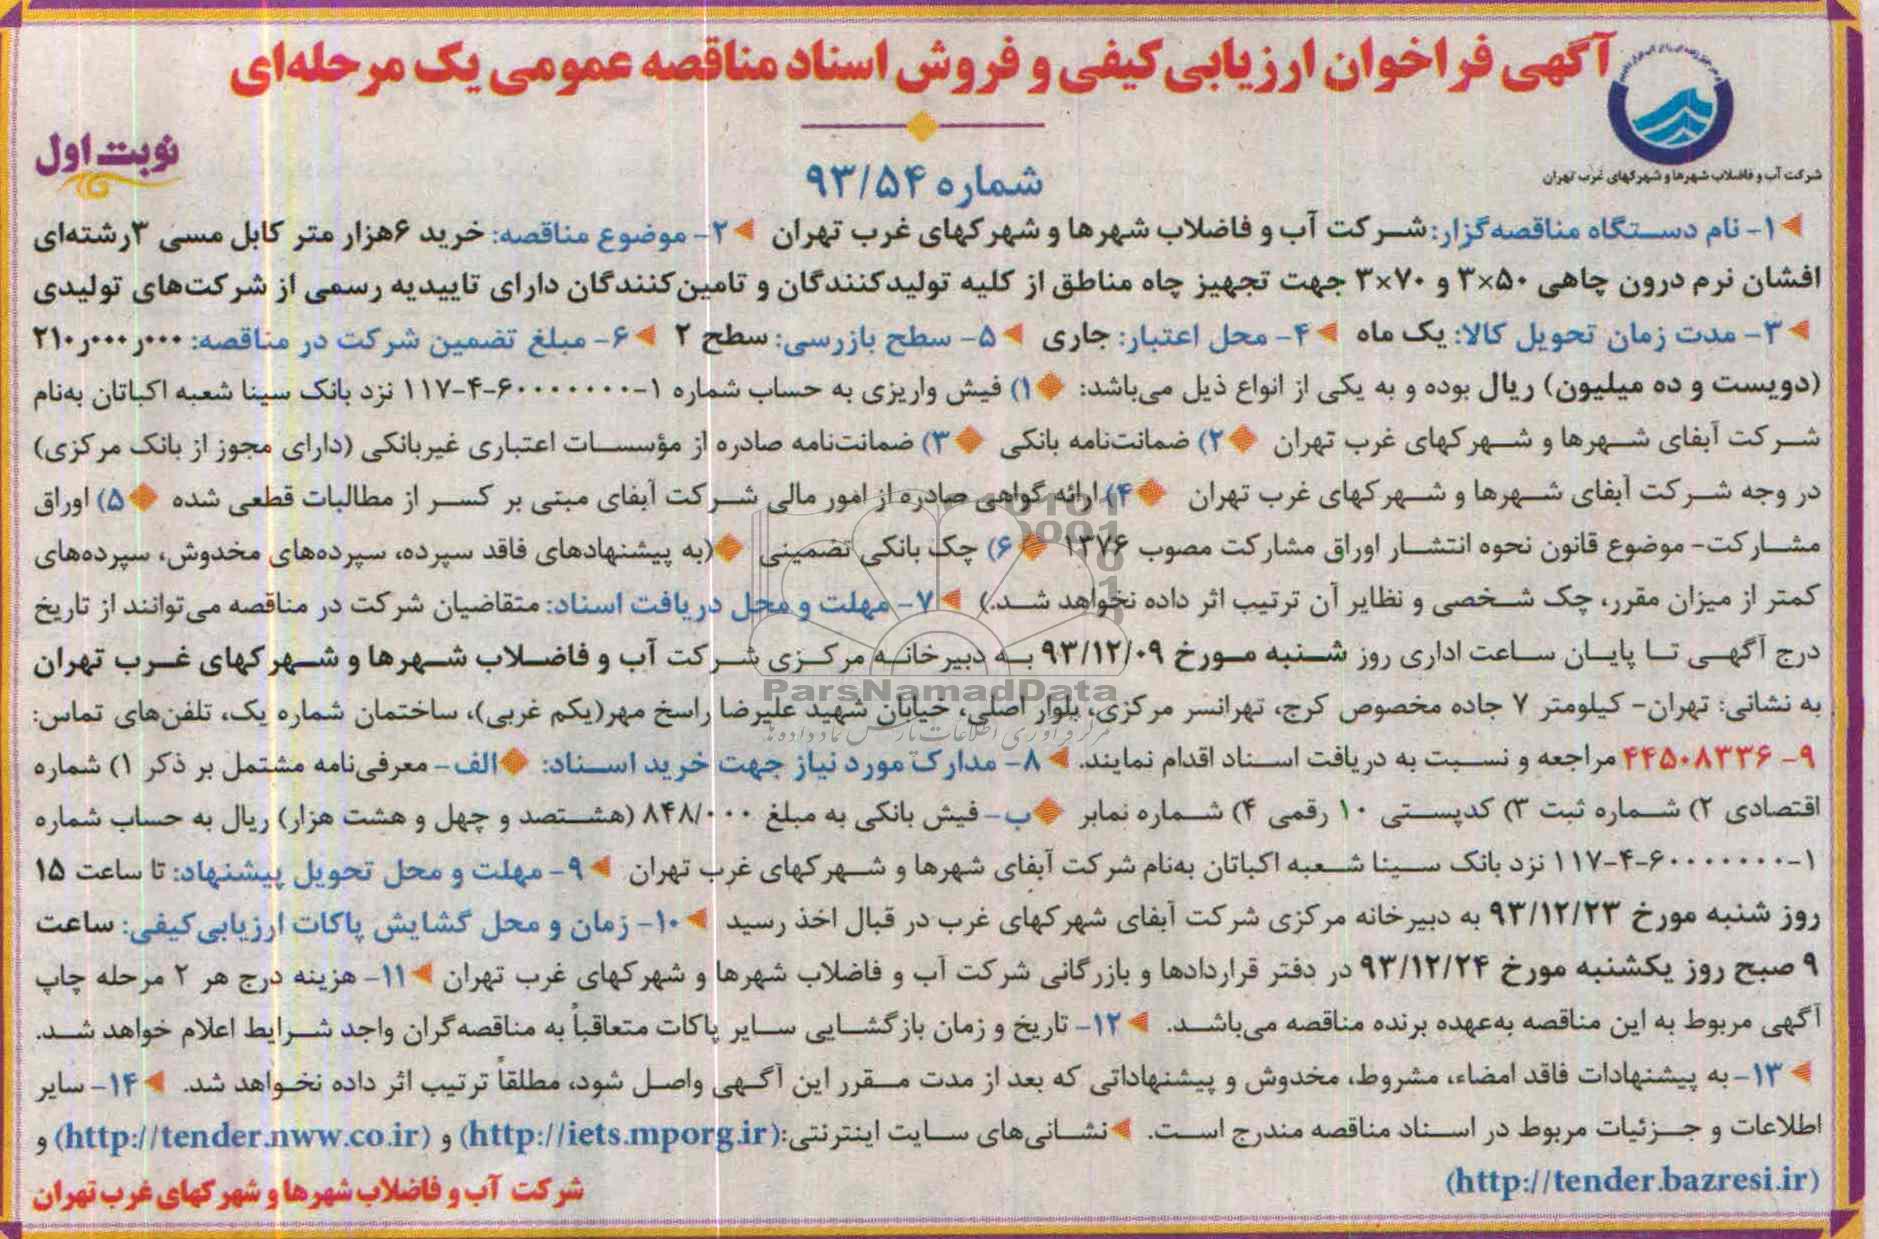 آگهی فراخوان ارزیابی کیفی و فروش اسناد مناقصه عمومی یک مرحله‌ای
شرکت آب و فاضلاب شهرها و شهرکهای غرب تهران
نوبت اول
شماره ۹۳/۵۴
۱- نام دستگاه مناقصه‌گزار: شرکت آب و فاضلاب شهرها و شهرکهای غرب تهران ۲- موضوع مناقصه: خرید ۶هزار متر کابل مسی ۳رشته‌ای
افشان نرم درون چاهی ۵۰×۳ و ۷۰×۳ جهت تجهیز چاه مناطق از کلیه تولیدکنندگان و تامین‌کنندگان دارای تاییدیه رسمی از شرکت‌های تولیدی
۳- مدت زمان تحویل کالا: یک ماه ۴- محل اعتبار: جاری ۵- سطح بازرسی: سطح ۲ ۶- مبلغ تضمین شرکت در مناقصه: ۲۱۰٫۰۰۰٫۰۰۰
(دویست و ده میلیون) ریال بوده و به یکی از انواع ذیل می‌باشد: ۱) فیش واریزی به حساب شماره ۱-۶۰۰۰۰۰۰۰-۴-۱۱۷ نزد بانک سینا شعبه اکباتان به‌نام
شرکت آبفای شهرها و شهرکهای غرب تهران ۲) ضمانت‌نامه بانکی ۳) ضمانت‌نامه صادره از مؤسسات اعتباری غیربانکی (دارای مجوز از بانک مرکزی)
در وجه شرکت آبفای شهرها و شهرکهای غرب تهران ۴) ارائه گواهی صادره از امور مالی شرکت آبفای مبتنی بر کسر از مطالبات قطعی شده ۵) اوراق
مشارکت- موضوع قانون نحوه انتشار اوراق مشارکت مصوب ۱۳۷۶ ۶) چک بانکی تضمینی (به پیشنهادهای فاقد سپرده، سپرده‌های مخدوش، سپرده‌های
کمتر از میزان مقرر، چک شخصی و نظایر آن ترتیب اثر داده نخواهد شد.) ۷- مهلت و محل دریافت اسناد: متقاضیان شرکت در مناقصه می‌توانند از تاریخ
درج آگهی تا پایان ساعت اداری روز شنبه مورخ ۹۳/۱۲/۰۹ به دبیرخانه مرکزی شرکت آب و فاضلاب شهرها و شهرکهای غرب تهران
ParsNamadData
به نشانی: تهران- کیلومتر ۷ جاده مخصوص کرج، تهرانسر مرکزی، بلوار اصلی، خیابان شهید علیرضا راسخ مهر(یکم غربی)، ساختمان شماره یک، تلفن‌های تماس:
۹- ۴۴۵۰۸۳۳۶ مراجعه و نسبت به دریافت اسناد اقدام نمایند. ۸- مدارک مورد نیاز جهت خرید اسناد: الف- معرفی‌نامه مشتمل بر ذکر ۱) شماره
اقتصادی ۲) شماره ثبت ۳) کدپستی ۱۰ رقمی ۴) شماره نمابر ب- فیش بانکی به مبلغ ۸۴۸/۰۰۰ (هشتصد و چهل و هشت هزار) ریال به حساب شماره
۱-۶۰۰۰۰۰۰۰-۴-۱۱۷ نزد بانک سینا شعبه اکباتان به‌نام شرکت آبفای شهرها و شهرکهای غرب تهران ۹- مهلت و محل تحویل پیشنهاد: تا ساعت ۱۵
روز شنبه مورخ ۹۳/۱۲/۲۳ به دبیرخانه مرکزی شرکت آبفای شهرکهای غرب در قبال اخذ رسید ۱۰- زمان و محل گشایش پاکات ارزیابی‌کیفی: ساعت
۹ صبح روز یکشنبه مورخ ۹۳/۱۲/۲۴ در دفتر قراردادها و بازرگانی شرکت آب و فاضلاب شهرها و شهرکهای غرب تهران ۱۱- هزینه درج هر ۲ مرحله چاپ
آگهی مربوط به این مناقصه به‌عهده برنده مناقصه می‌باشد. ۱۲- تاریخ و زمان بازگشایی سایر پاکات متعاقباً به مناقصه‌گران واجد شرایط اعلام خواهد شد.
۱۳- به پیشنهادات فاقد امضاء، مشروط، مخدوش و پیشنهاداتی که بعد از مدت مقرر این آگهی واصل شود، مطلقاً ترتیب اثر داده نخواهد شد. ۱۴- سایر
اطلاعات و جزئیات مربوط در اسناد مناقصه مندرج است. نشانی‌های سایت اینترنتی: (http://iets.mporg.ir) و (http://tender.nww.co.ir) و
(http://tender.bazresi.ir)
شرکت آب و فاضلاب شهرها و شهرکهای غرب تهران